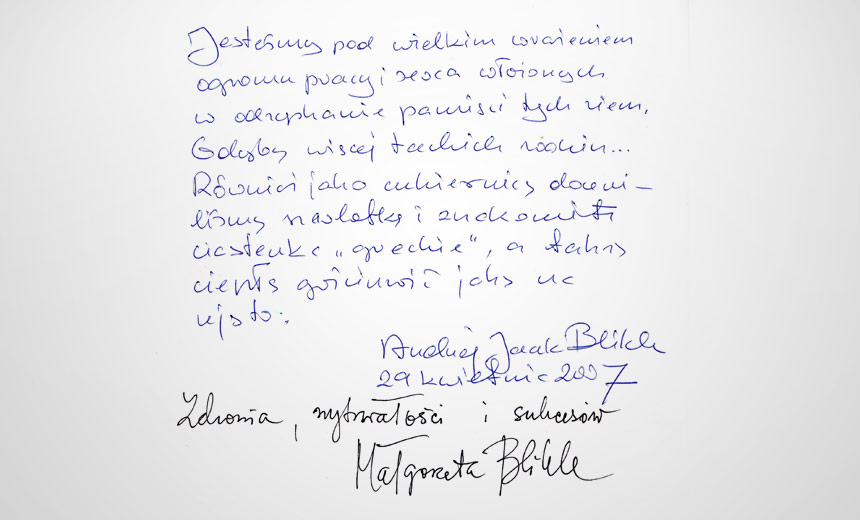 Jesteśmy pod wielkim wrażeniem
ogromu pracy i serca włożonych
w odzyskanie pamięci tych ziem.
Gdyby więcej takich rodzin...
Również jako cukiernicy doceni-
liśmy szarlotkę i znakomite
ciasteczka „greckie”, a także
ciepłą gościnność jaka na
Andrzej Jacek Blikle
29 kwietnia 2007
Zdrowia, wytrwałości i sukcesów
Małgorzata Blikle